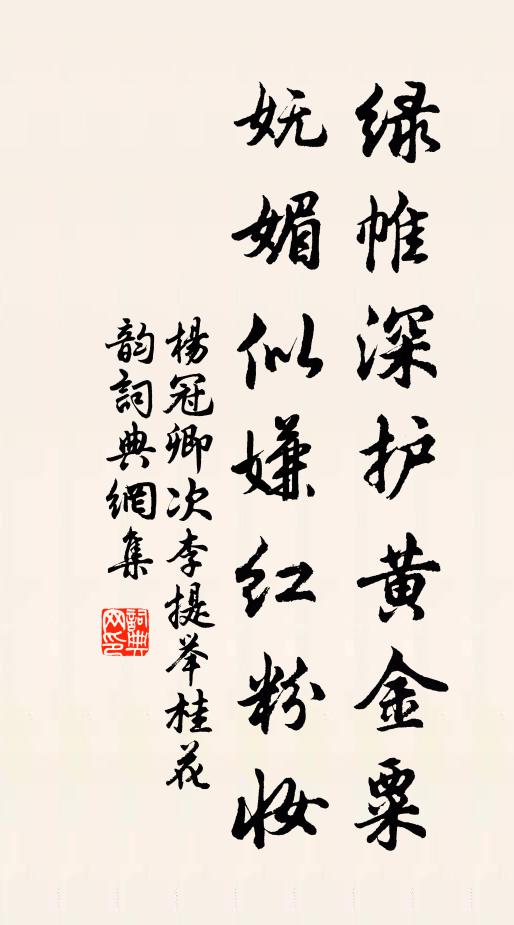 绿帷深护黄金粟
妩媚似嫌红粉妆
楊冠卿次李提举桂花
韵詞典網集
詞典
网印